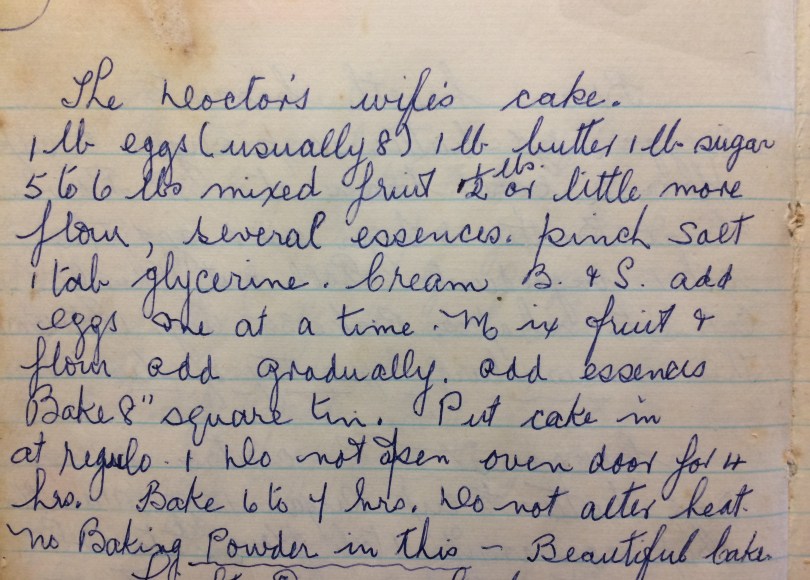 The Doctor's wife's cake.
1 lb eggs (usually 8) 1 lb butter 1 lb sugar
5 to 6 lbs mixed fruit 1½ lbs. or little more
flour, several essences. pinch salt
1 tab glycerine. Cream B. & S. add
eggs one at a time. Mix fruit &
flour add gradually. add essences
Bake 8" square tin. Put cake in
at regulo 1 Do not open oven door for 4
hrs. Bake 6 to 7 hrs. Do not alter heat.
No Baking Powder in this - Beautiful Cake.